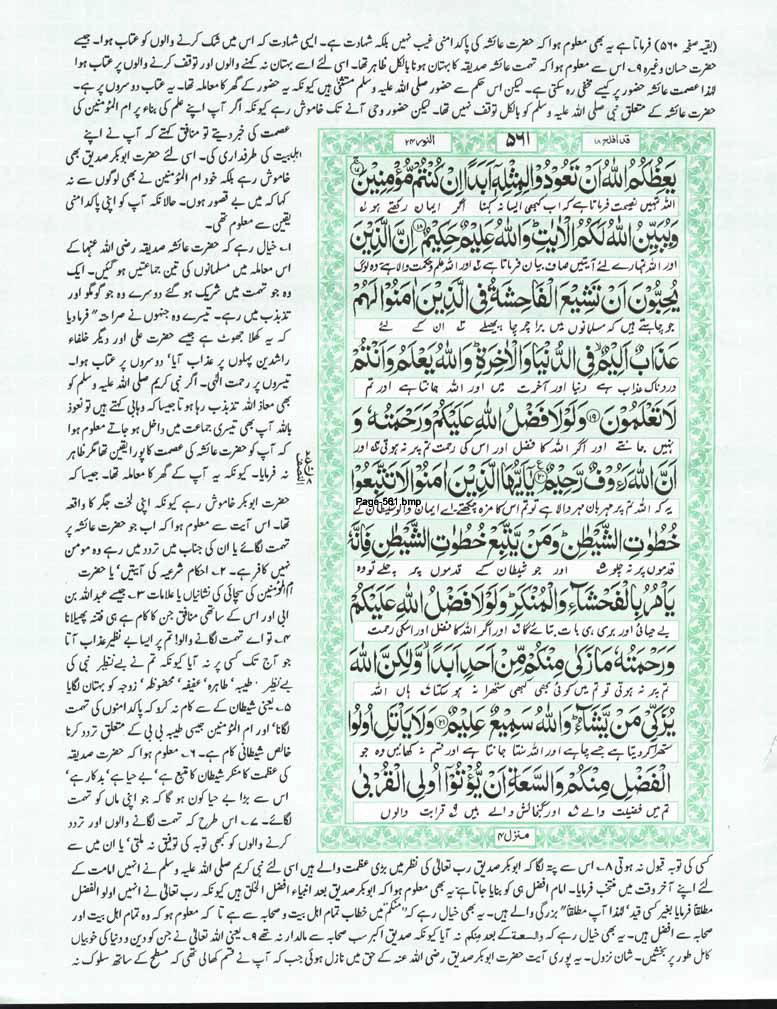 (بقیہ صفحہ ۵۶۰) فرماتا ہے یہ بھی معلوم ہوا کہ حضرت عائشہ کی پاکدامنی غیب نہیں بلکہ شہادت ہے۔ ایسی شہادت کہ اس میں شک کرنے والوں کو عتاب ہوا۔ جیسے
حضرت حسان وغیرہ ۹۔ اس سے معلوم ہوا کہ تہمت عائشہ صدیقہ کا بہتان ہونا بالکل ظاہر تھا۔ اسی لئے اسے بہتان نہ کہنے والوں اور توقف کرنے والوں پر عتاب ہوا
لہٰذا عصمت عائشہ حضور پر کیسے مخفی رہ سکتی ہے۔ لیکن اس حکم سے حضور صلی اللہ علیہ وسلم مستثنیٰ ہیں کیونکہ یہ حضور کے گھر کا معاملہ تھا۔ یہ عتاب دوسروں پر ہے۔
حضرت عائشہ کے متعلق نبی صلی اللہ علیہ وسلم کو بالکل توقف نہیں تھا۔ لیکن حضور وحی آنے تک خاموش رہے کیونکہ اگر آپ اپنے علم کی بناء پر ام المؤمنین کی
قد افلح ۱۸
۵۶۱
النور ۲۴
يَعِظُكُمُ اللّٰهُ اَنْ تَعُوْدُوْا لِمِثْلِهٖۤ اَبَدًا اِنْ كُنْتُمْ مُّؤْمِنِيْنَ ۱۷
اللہ تمہیں نصیحت فرماتا ہے کہ اب کبھی ایسا نہ کہنا اگر ایمان رکھتے ہو
وَيُبَيِّنُ اللّٰهُ لَكُمُ الْاٰيٰتِ وَاللّٰهُ عَلِيْمٌ حَكِيْمٌ ۱۸ اِنَّ الَّذِيْنَ
اور اللہ تمہارے لئے آیتیں صاف بیان فرماتا ہے اور اللہ علم و حکمت والا ہے وہ لوگ
يُحِبُّوْنَ اَنْ تَشِيْعَ الْفَاحِشَةُ فِى الَّذِيْنَ اٰمَنُوْا لَهُمْ
جو چاہتے ہیں کہ مسلمانوں میں برا چرچا پھیلے ان کے لئے
عَذَابٌ اَلِيْمٌ فِى الدُّنْيَا وَالْاٰخِرَةِ وَاللّٰهُ يَعْلَمُ وَاَنْتُمْ
دردناک عذاب ہے دنیا اور آخرت میں اور اللہ جانتا ہے اور تم
لَا تَعْلَمُوْنَ ۱۹ وَلَوْلَا فَضْلُ اللّٰهِ عَلَيْكُمْ وَرَحْمَتُهٗ وَ
نہیں جانتے اور اگر اللہ کا فضل اور اس کی رحمت تم پر نہ ہوتی اور
اَنَّ اللّٰهَ رَءُوْفٌ رَّحِيْمٌ ۲۰ يٰۤاَيُّهَا الَّذِيْنَ اٰمَنُوْا لَا تَتَّبِعُوْا
Page-561.bmp
یہ کہ اللہ تم پر مہربان مہر والا ہے تو تم اس کا مزہ چکھتے اے ایمان والو شیطان کے
خُطُوٰتِ الشَّيْطٰنِ وَمَنْ يَّتَّبِعْ خُطُوٰتِ الشَّيْطٰنِ فَاِنَّهٗ
قدموں پر نہ چلو اور جو شیطان کے قدموں پر چلے تو وہ
يَاْمُرُ بِالْفَحْشَآءِ وَالْمُنْكَرِ وَلَوْلَا فَضْلُ اللّٰهِ عَلَيْكُمْ
بے حیائی اور بری ہی بات بتائے گا اور اگر اللہ کا فضل اور اسکی رحمت
وَرَحْمَتُهٗ مَا زَكٰى مِنْكُمْ مِّنْ اَحَدٍ اَبَدًا وَّلٰكِنَّ اللّٰهَ
تم پر نہ ہوتی تو تم میں کوئی بھی کبھی ستھرا نہ ہو سکتا ہاں اللہ
يُزَكِّىْ مَنْ يَّشَآءُ وَاللّٰهُ سَمِيْعٌ عَلِيْمٌ ۲۱ وَلَا يَاْتَلِ اُولُوا
ستھرا کر دیتا ہے جسے چاہے اور اللہ سنتا جانتا ہے اور قسم نہ کھائیں وہ جو
الْفَضْلِ مِنْكُمْ وَالسَّعَةِ اَنْ يُّؤْتُوْۤا اُولِى الْقُرْبٰى
تم میں فضیلت والے اور گنجائش والے ہیں قرابت والوں
منزل ۴
عصمت کی خبر دیتے تو منافق کہتے کہ آپ نے اپنے
اہلبیت کی طرفداری کی۔ اسی لئے حضرت ابوبکر صدیق بھی
خاموش رہے بلکہ خود ام المؤمنین نے بھی لوگوں سے نہ
کہا کہ میں بے قصور ہوں۔ حالانکہ آپ کو اپنی پاکدامنی
یقین سے معلوم تھی۔
۱۔ خیال رہے کہ حضرت عائشہ صدیقہ رضی اللہ عنہا کے
اس معاملہ میں مسلمانوں کی تین جماعتیں ہو گئیں۔ ایک
وہ جو تہمت میں شریک ہو گئے دوسرے وہ جو گومگو اور
تذبذب میں رہے۔ تیسرے وہ جنہوں نے صراحتہ" فرما دیا
کہ یہ کھلا جھوٹ ہے جیسے حضرت علی اور دیگر خلفاء
راشدین پہلوں پر عذاب آیا' دوسروں پر عتاب ہوا۔
تیسروں پر رحمت الٰہی۔ اگر نبی کریم صلی اللہ علیہ وسلم کو
بھی معاذ اللہ تذبذب رہا ہوتا جیسا کہ وہابی کہتے ہیں تو نعوذ
باللہ آپ بھی تیسری جماعت میں داخل ہو جاتے معلوم ہوا
کہ آپ کو حضرت عائشہ کی عصمت کا پورا یقین تھا مگر ظاہر
نہ فرمایا۔ کیونکہ یہ آپ کے گھر کا معاملہ تھا۔ جیسا کہ
حضرت ابوبکر خاموش رہے کیونکہ اپنی لخت جگر کا واقعہ
تھا۔ اس آیت سے معلوم ہوا کہ اب جو حضرت عائشہ پر
تہمت لگائے یا ان کی جناب میں تردد میں رہے وہ مومن
نہیں کافر ہے۔ ۲۔ احکام شرعیہ کی آیتیں' یا حضرت
ام المؤمنین کی سچائی کی نشانیاں یا علامات ۳۔ جیسے عبداللہ بن
ابی اور اس کے ساتھی منافق جن کا کام ہے ہی فتنہ پھیلانا
۴۔ تو اے تہمت لگانے والو! تم پر ایسا بے نظیر عذاب آتا
جو آج تک کسی پر نہ آیا کیونکہ تم نے بے نظیر نبی کی
بے نظیر طیبہ' طاہرہ' عفیفہ' محفوظہ' زوجہ کو بہتان لگایا
۵۔ یعنی شیطان کے سے کام نہ کرو کہ پاکدامنوں کی تہمت
لگانا' اور ام المؤمنین جیسی طیبہ بی بی کے متعلق تردد کرنا
خالص شیطانی کام ہے۔ ۶۔ معلوم ہوا کہ حضرت صدیقہ
کی عظمت کا منکر شیطان کا تبع ہے' بے حیا ہے' بدکار ہے'
اس سے بڑا بے حیا کون ہو گا کہ جو اپنی ماں کو تہمت
لگائے۔ ۷۔ اس طرح کہ تہمت لگانے والوں اور تردد
کرنے والوں کو کبھی توبہ کی توفیق نہ ملتی' یا ان میں سے
کسی کی توبہ قبول نہ ہوتی ۸۔ اس سے پتہ لگا کہ ابوبکر صدیق رب تعالیٰ کی نظر میں بڑی عظمت والے ہیں اسی لئے نبی کریم صلی اللہ علیہ وسلم نے انہیں امامت کے
لئے اپنے آخر وقت میں منتخب فرمایا۔ امام افضل ہی کو بنایا جاتا ہے یہ بھی معلوم ہوا کہ ابوبکر صدیق بعد انبیاء افضل الخلق ہیں کیونکہ رب تعالیٰ نے انہیں اولو الفضل
مطلقاً فرمایا بغیر کسی قید' لہٰذا آپ مطلقاً" بزرگی والے ہیں۔ یہ بھی خیال رہے کہ "منکم" میں خطاب تمام اہل بیت و صحابہ سے ہے تا کہ معلوم ہو کہ وہ تمام اہل بیت اور
صحابہ سے افضل ہیں۔ یہ بھی خیال رہے کہ والسعة کے بعد منکم نہ آیا کیونکہ صدیق اکبر سب صحابہ سے مالدار نہ تھے ۹۔ یعنی اللہ تعالیٰ نے جن کو دین و دنیا کی خوبیاں
کامل طور پر بخشیں۔ شان نزول۔ یہ پوری آیت حضرت ابوبکر صدیق رضی اللہ عنہ کے حق میں نازل ہوئی جب کہ آپ نے قسم کھا لی تھی کہ مسطح کے ساتھ سلوک نہ